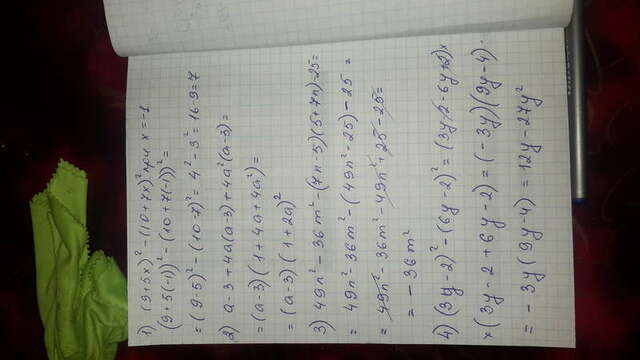 1) (9+5x)² - (10+7x)² при x=-1
(9+5(-1))² - (10+7(-1))² =
= (9-5)² - (10-7)² = 4² - 3² = 16-9=7
2) a-3+4a(a-3)+4a²(a-3)=
= (a-3)(1+4a+4a²)=
= (a-3)(1+2a)²
3) 49n² - 36m² - (7n-5)(5+7n)-25=
= 49n² - 36m² - (49n² - 25) - 25 =
= 49n² - 36m² - 49n² + 25 - 25=
= - 36m²
4) (3y-2)² - (6y-2)² = (3y-2-6y+2)×
×(3y-2+6y-2) = (-3y)(9y-4)·
= -3y(9y-4) = 12y - 27y²